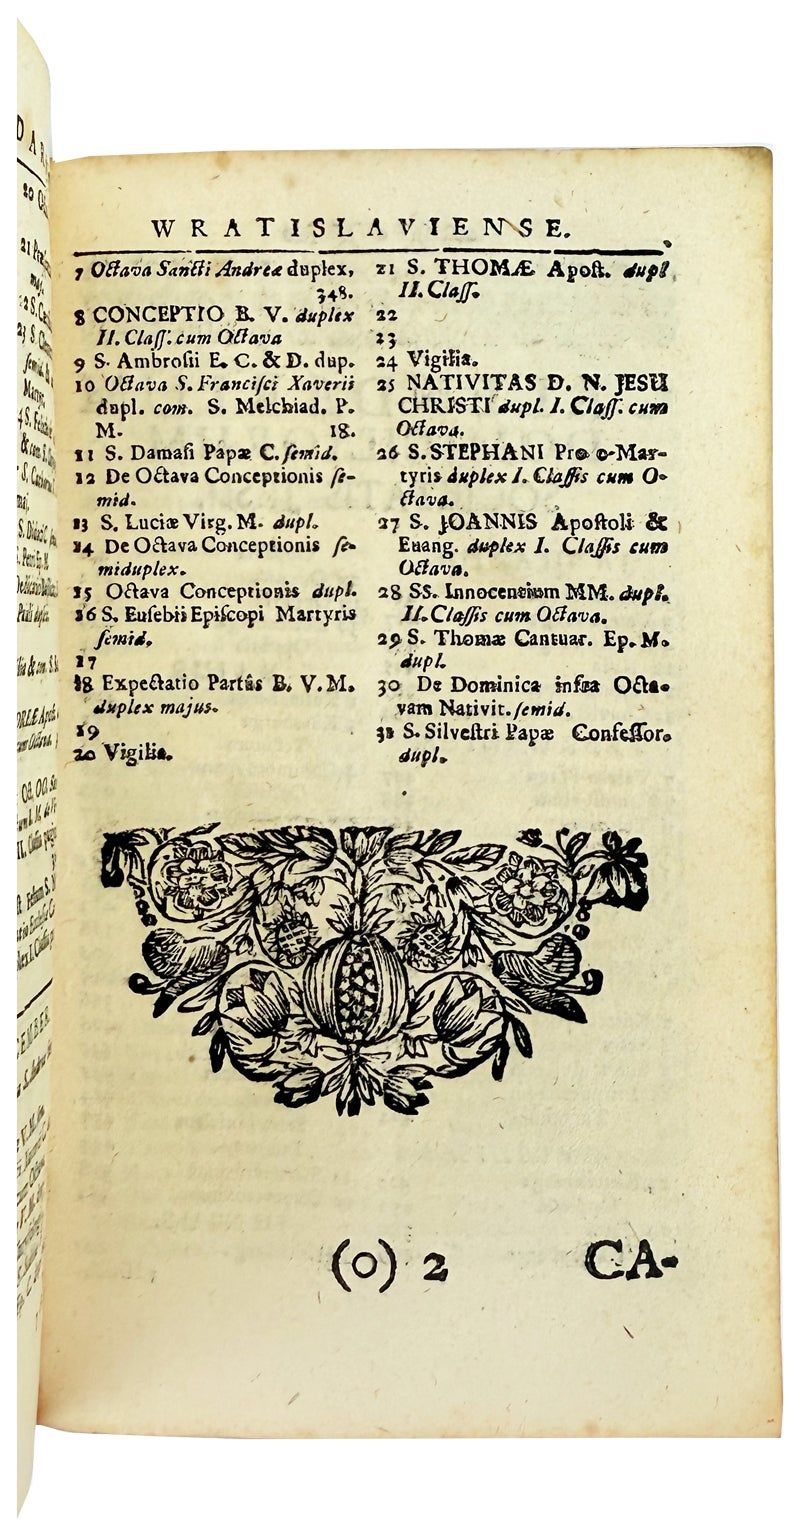 WRATISLAVIENSE.
7 Octava Sancti Andreæ duplex,
348.
8 CONCEPTIO B. V. duplex
II. Claſſ. cum Octava
9 S. Ambroſii E. C. & D. dup.
10 Octava S. Franciſci Xaverii
dupl. com. S. Melchiad. P.
M. 18.
11 S. Damaſi Papæ C. ſemid.
12 De Octava Conceptionis ſe-
mid.
13 S. Luciæ Virg. M. dupl.
14 De Octava Conceptionis ſe-
miduplex.
15 Octava Conceptionis dupl.
16 S. Euſebii Epiſcopi Martyris
ſemid.
17
18 Expectatio Partûs B. V. M.
duplex majus.
19
20 Vigilia.
21 S. THOMÆ Apoſt. dupl
II. Claſſ.
22
23
24 Vigilia.
25 NATIVITAS D. N. JESU
CHRISTI dupl. I. Claſſ. cum
Octava.
26 S. STEPHANI Mar-
tyris duplex I. Claſſis cum O-
ctava.
27 S. JOANNIS Apoſtoli &
Euang. duplex I. Claſſis cum
Octava.
28 SS. Innocentium MM. dupl.
II. Claſſis cum Octava.
29 S. Thomæ Cantuar. Ep. M.
dupl.
30 De Dominica infra Octa-
vam Nativit. ſemid.
31 S. Silveſtri Papæ Confeſſor.
dupl.
(o) 2 CA-